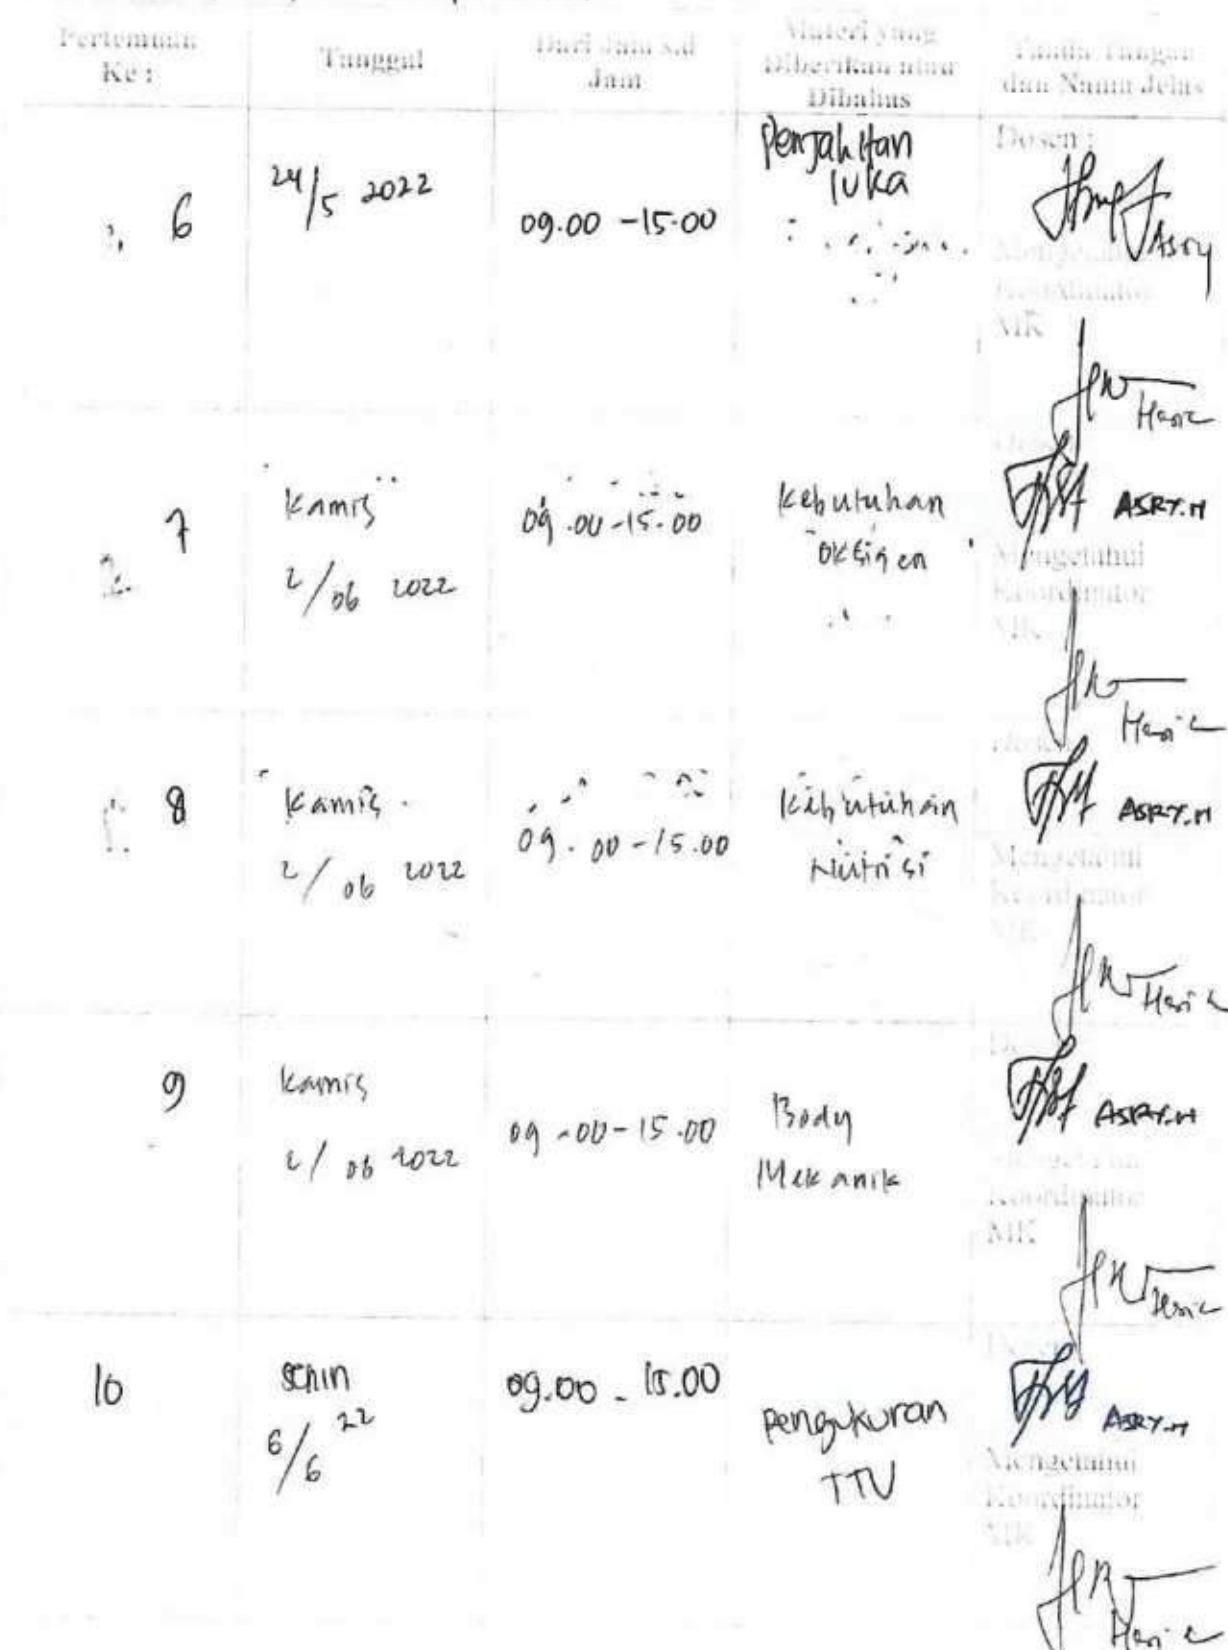 Pertemuan
Ke :
Tanggal
Dari Jam s.d
Jam
Materi yang
Diberikan atau
Dibahas
Tanda Tangan
dan Nama Jelas
6
24/5 2022
09.00 - 15.00
Penjahitan
luka
Dosen :
Asry
Mengetahui
Koordinator
MK
7
Kamis
2/06 2022
09.00 - 15.00
Kebutuhan
Oksigen
ASRY.M
Mengetahui
Koordinator
MK
8
Kamis
2/06 2022
09.00 - 15.00
Kebutuhan
Nutrisi
ASRY.M
Mengetahui
Koordinator
MK
9
Kamis
2/06 2022
09.00 - 15.00
Body
Mekanik
ASRY.M
Mengetahui
Koordinator
MK
10
Senin
6/6 22
09.00 - 15.00
Pengukuran
TTV
ASRY.M
Mengetahui
Koordinator
MK